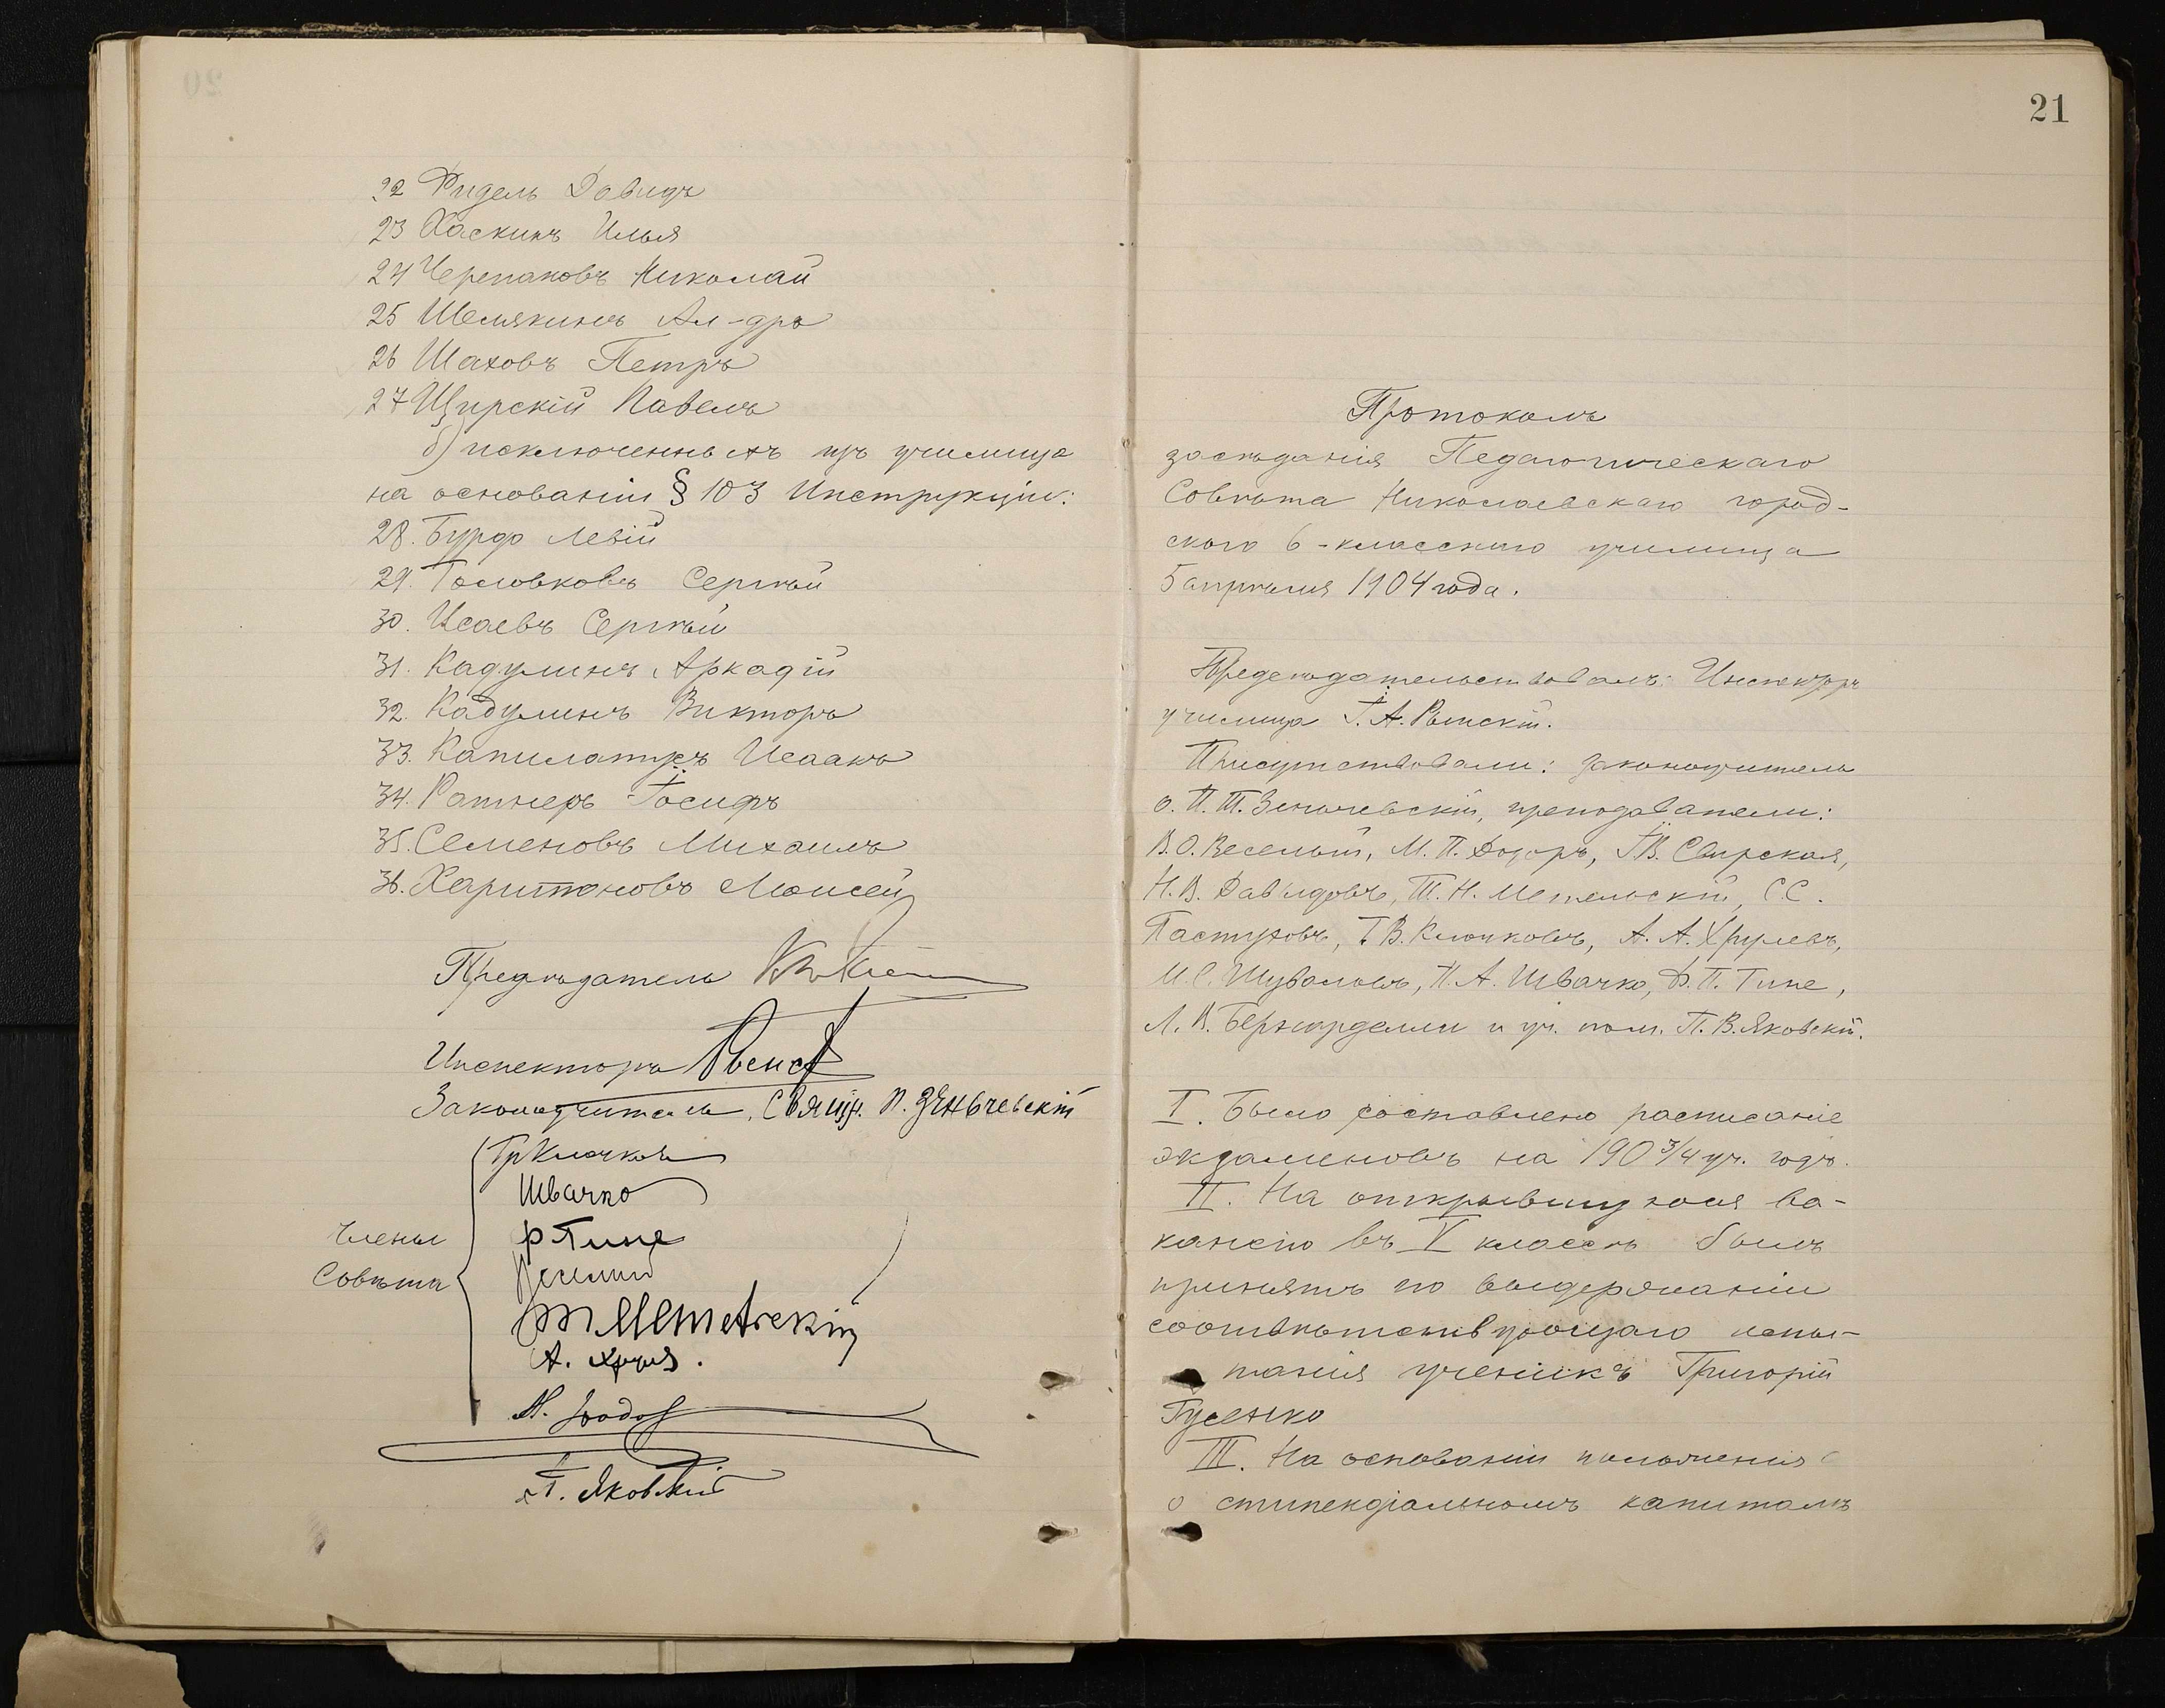 22 Ридель Давидъ
23 Хаскинъ Илья
24 Черепановъ Николай
25 Шемякинъ Ал-дръ
26 Шаховъ Петръ
27 Щирскій Павелъ
б) исключенныхъ изъ училища
на основаніи § 103 Инструкціи:
28. Бурдо Левій
29. Головковъ Сергѣй
30. Исаевъ Сергѣй
31. Кадулинъ Аркадій
32. Кадулинъ Викторъ
33. Исаакъ
34. Ратнеръ Іосифъ
35. Семеновъ Михаилъ
36. Харитоновъ Моисей
Предсѣдатель
Инспекторъ
Законоучитель, Свящ. П. Зеньчевскій
Гр Клочковъ
Швачко
Ф Типе
Члены
Совѣта
Веселый
Т Метельскій
А. Хрул.
П. Яковскій
21
Протоколъ
засѣданія Педагогическаго
Совѣта Николаевскаго город-
ского 6-класснаго училища
5 апрѣля 1904 года.
Предсѣдательствовалъ: Инспекторъ
училища І. А. Рынскій.
Присутствовали: законоучитель
о. П. Т. Зеньчевскій, преподаватели:
В. О. Веселый, М. П. Дозоръ, І. В. Свирская,
Н. В. Давыдовъ, Т. Н. Метельскій, С. С.
Пастуховъ, Г. В. Клочковъ, А. А. Хрулевъ,
И. С. Шуваловъ, П. А. Швачко, Ф. П. Типе,
Л. В. Бернарделли и уч. пом. П. В. Яковскій.
I. Было составлено расписаніе
экзаменовъ на 190 3/4 уч. годъ.
II. На открывшуюся ва-
кансію въ V классъ былъ
принятъ по выдержаніи
соотвѣтствующаго испы-
танія ученикъ Григорій
Гусенко
III. На основаніи положенія
о стипендіальномъ капиталѣ